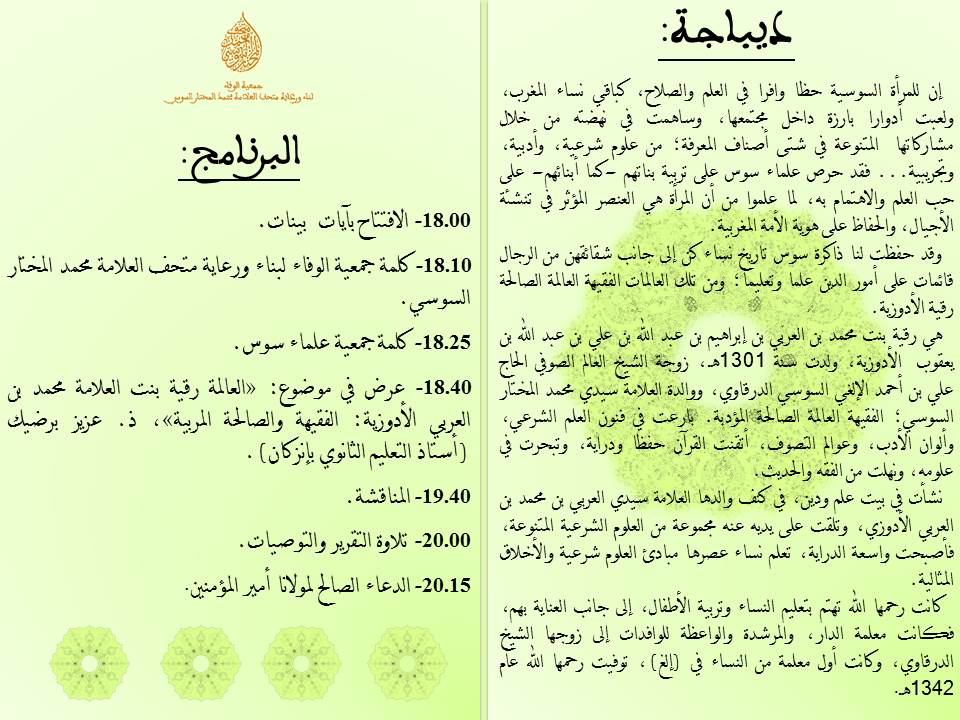 ديباجة:
إن للمرأة السوسية حظا وافرا في العلم والصلاح، كباقي نساء المغرب،
ولعبت أدوارا بارزة داخل مجتمعها، وساهمت في نهضته من خلال
مشاركاتها المتنوعة في شتى أصناف المعرفة؛ من علوم شرعية، وأدبية،
وتجريبية... فقد حرص علماء سوس على تربية بناتهم -كما أبنائهم- على
حب العلم والاهتمام به، لما علموا من أن المرأة هي العنصر المؤثر في تنشئة
الأجيال، والحفاظ على هوية الأمة المغربية.
وقد حفظت لنا ذاكرة سوس تاريخ نساء كن إلى جانب شقائقهن من الرجال
قائمات على أمور الدين علما وتعليما؛ ومن تلك العالمات الفقيهة العالمة الصالحة
رقية الأدوزية.
هي رقية بنت محمد بن العربي بن إبراهيم بن عبد الله بن علي بن عبد الله بن
يعقوب الأدوزية، ولدت سنة 1301هـ، زوجة الشيخ العالم الصوفي الحاج
علي بن أحمد الإلغي السوسي الدرقاوي، ووالدة العلامة سيدي محمد المختار
السوسي؛ الفقيهة العالمة الصالحة المؤدبة. بارعت في فنون العلم الشرعي،
وألوان الأدب، وعوالم التصوف، أتقنت القرآن حفظا ودراية، وتبحرت في
علومه، ونهلت من الفقه والحديث.
نشأت في بيت علم ودين، في كنف والدها العلامة سيدي العربي بن محمد بن
العربي الأدوزي، وتلقت على يديه عنه مجموعة من العلوم الشرعية المتنوعة،
فأصبحت واسعة الدراية، تعلم نساء عصرها مبادئ العلوم شرعية والأخلاق
المثالية.
كانت رحمها الله تهتم بتعليم النساء وتربية الأطفال، إلى جانب العناية بهم،
فكانت معلمة الدار، والمرشدة والواعظة للوافدات إلى زوجها الشيخ
الدرقاوي، وكانت أول معلمة من النساء في (إلغ)، توفيت رحمها الله عام
1342هـ.
جمعية الوفاء
لبناء ورعاية متحف العلامة محمد المختار السوسي
البرنامج:
18.00- الافتتاح بآيات بينات.
18.10- كلمة جمعية الوفاء لبناء ورعاية متحف العلامة محمد المختار
السوسي.
18.25- كلمة جمعية علماء سوس.
18.40- عرض في موضوع: «العالمة رقية بنت العلامة محمد بن
العربي الأدوزية: الفقيهة والصالحة المربية»، ذ. عزيز برضيك
(أستاذ التعليم الثانوي بإنزكان).
19.40- المناقشة.
20.00- تلاوة التقرير والتوصيات.
20.15- الدعاء الصالح لمولانا أمير المؤمنين.